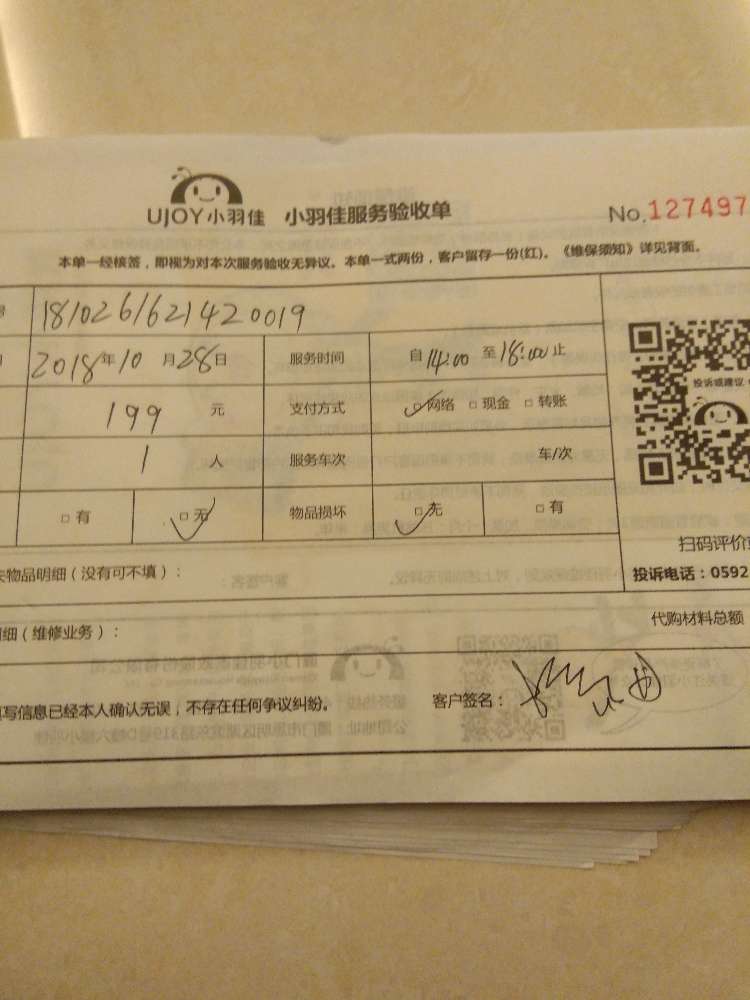 UJOY小羽佳 小羽佳服务验收单 No.127497
本单一经核签，即视为对本次服务验收无异议。本单一式两份，客户留存一份(红)。《维保须知》详见背面。
号 181026162142 0019
2018年10月28日 服务时间 自14:00至18:00止
投诉或建议
199 元 支付方式 ☑网络 □现金 □转账
1 人 服务车次 车/次
□有 ☑无 物品损坏 ☑无 □有
扫码评价
失物品明细（没有可不填）： 投诉电话：0592
明细（维修业务）： 代购材料总额
填写信息已经本人确认无误，不存在任何争议纠纷。 客户签名：